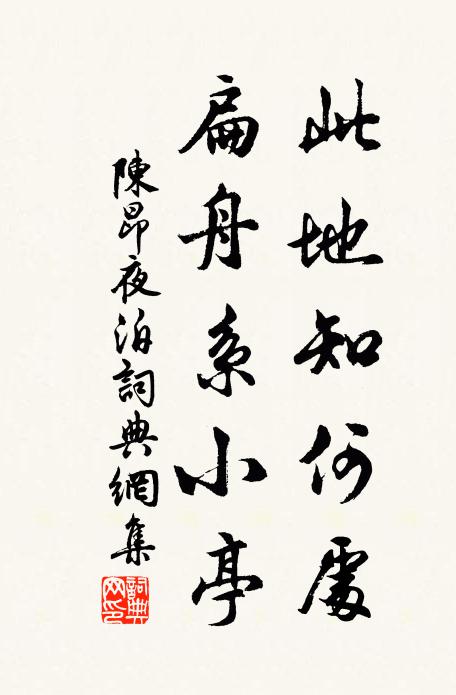 此地知何處
扁舟系小亭
陳昂夜泊詞典網集
詞典網印